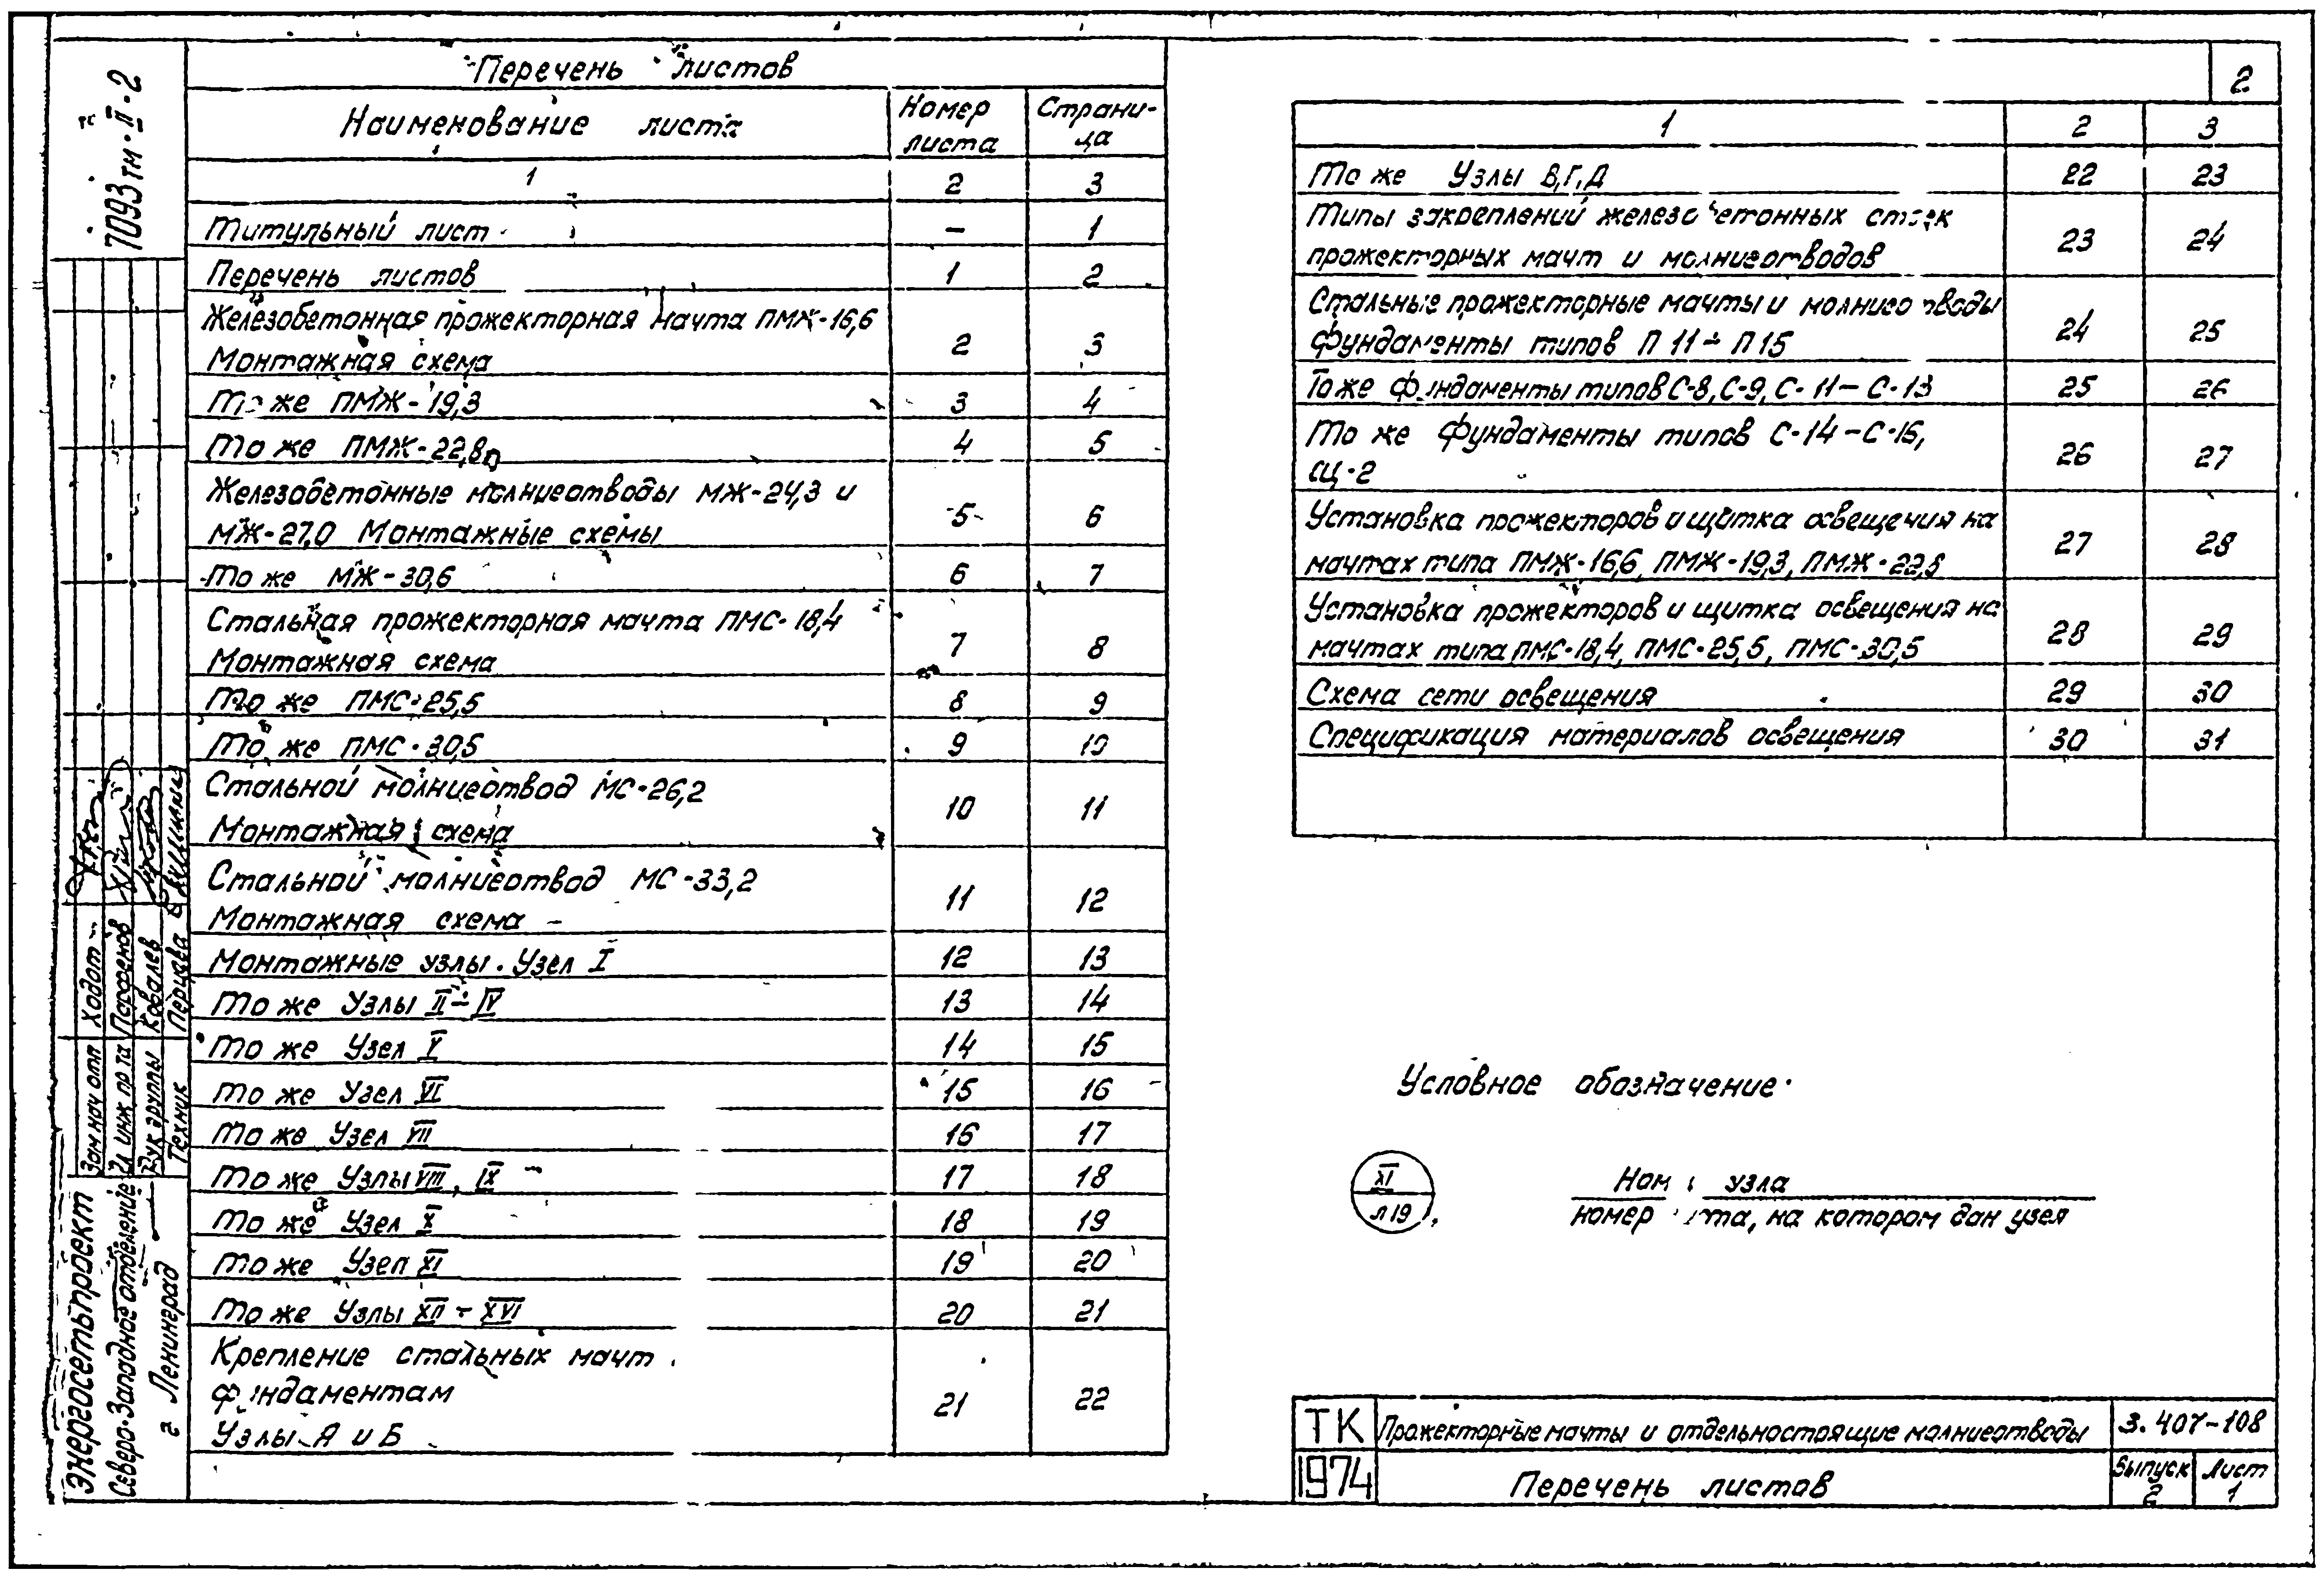 Перечень листов
Наименование листа Номер листа Страница
1 2 3
Титульный лист — 1
Перечень листов 1 2
Железобетонная прожекторная мачта ПМЖ-16,6
Монтажная схема 2 3
То же ПМЖ-19,3 3 4
То же ПМЖ-22,8 4 5
Железобетонные молниеотводы МЖ-24,3 и
МЖ-27,0 Монтажные схемы 5 6
То же МЖ-30,6 6 7
Стальная прожекторная мачта ПМС-18,4
Монтажная схема 7 8
То же ПМС-25,5 8 9
То же ПМС-30,5 9 10
Стальной молниеотвод МС-26,2
Монтажная схема 10 11
Стальной молниеотвод МС-33,2
Монтажная схема 11 12
Монтажные узлы. Узел I 12 13
То же Узлы II÷IV 13 14
То же Узел V 14 15
То же Узел VI 15 16
То же Узел VII 16 17
То же Узлы VIII, IX 17 18
То же Узел X 18 19
То же Узел XI 19 20
То же Узлы XII ÷ XVI 20 21
Крепление стальных мачт
фундаментам
Узлы А и Б 21 22
2
1 2 3
То же Узлы В,Г,Д 22 23
Типы закреплений железобетонных стоек
прожекторных мачт и молниеотводов 23 24
Стальные прожекторные мачты и молниеотводы
Фундаменты типов П 11 ÷ П 15 24 25
То же Фундаменты типов С-8, С-9, С-11 — С-13 25 26
То же Фундаменты типов С-14 — С-16,
СЦ-2 26 27
Установка прожекторов и щитка освещения на
мачтах типа ПМЖ-16,6, ПМЖ-19,3, ПМЖ-22,8 27 28
Установка прожекторов и щитка освещения на
мачтах типа ПМС-18,4, ПМС-25,5, ПМС-30,5 28 29
Схема сети освещения 29 30
Спецификация материалов освещения 30 31
Условное обозначение
XI
л 19
узла
номер на котором дан узел
ТК Прожекторные мачты и отдельностоящие молниеотводы 3.407-108
1974 Перечень листов Выпуск 2 Лист 1
7093тм-II-2
Зам нач отп Ходот
Гл инж пр та Парфенов
Рук группы Ковалев
Техник Перцева
Энергосетьпроект
Северо-Западное отделение
г Ленинград